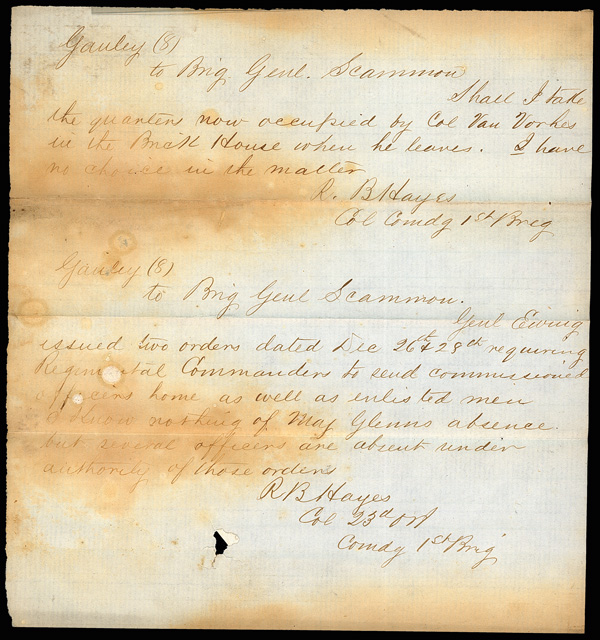 Gauley (8)
to Brig Genl. Scammon
Shall I take
the quarters now occupied by Col Van Vorhes
in the Brick House when he leaves. I have
no choice in the matter
R. B Hayes
Col Comdg 1st Brig
Gauley (8)
to Brig Genl Scammon.
Genl Ewing
issued two orders dated Dec 26th & 28th requiring
Regimental Commanders to send commissioned
officers home as well as enlisted men
I know nothing of Maj Glenns absence.
but several officers are absent under
authority of those orders
R B Hayes
Col 23d OVI
Comdg 1st Brig